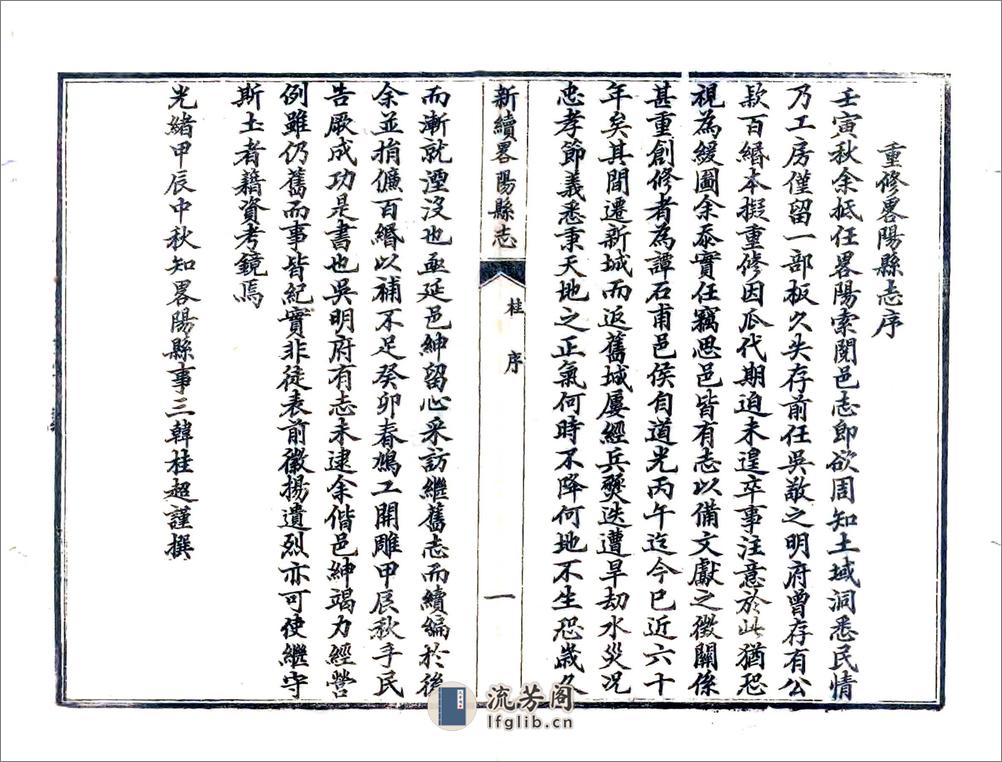 重修畧陽縣志序
壬寅秋余抵任畧陽索閱邑志卽欲周知土域洞悉民情
乃工房僅留一部板久失存前任吳敬之明府曾存有公
款百緡本擬重修因瓜代期迫未遑卒事注意於此猶恐
視為緩圖余忝實任竊思邑皆有志以備文獻之徵關係
甚重創修者為譚石甫邑侯自道光丙午迄今已近六十
年矣其間遷新城而返舊城屢經兵燹迭遭旱刼水災況
忠孝節義悉秉天地之正氣何時不降何地不生恐歲久
新續畧陽縣志
桂序
一
而漸就湮沒也亟延邑紳留心采訪繼舊志而續編於後
余並捐儷百緡以補不足癸卯春鳩工開雕甲辰秋手民
告厥成功是書也吳明府有志未逮余偕邑紳竭力經營
例雖仍舊而事皆紀實非徒表前徽揚遺烈亦可使繼守
斯土者藉資考鏡焉
光緒甲辰中秋知畧陽縣事三韓桂超謹撰
流芳阁
lfglib.cn